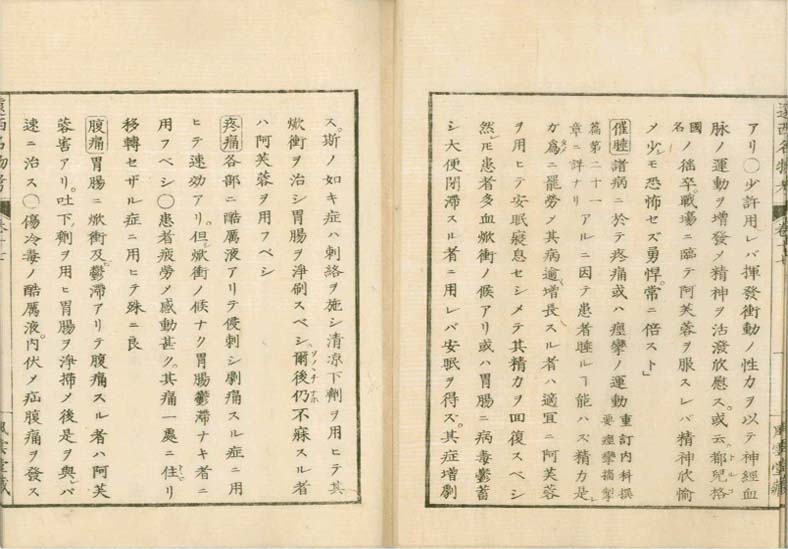 アリ○少許用レバ揮發衝動ノ性力ヲ以テ神經血
脉ノ運動ヲ增發メ精神ヲ活潑欣慰ス。或云都兒格
國ノ徭卒。戰場ニ臨テ阿芙蓉ヲ服スレバ精神欣愉
メ少モ恐怖セズ勇悍。常ニ倍スト」
催睡 諸病ニ於テ疼痛或ハ痙攣ノ運動 重訂内科撰要痙攣搐掣
篇第二十一章ニ詳ナリ アルニ因テ患者睡ルヿ能ハズ精力是
ガ爲ニ罷勞メ其病逾增長スル者ハ適宜ニ阿芙蓉
ヲ用ヒテ安眠寢息セシメテ其精力ヲ回復スベシ
然ㇾ𪜈患者多血焮衝ノ候アリ或ハ胃腸ニ病毒鬱蓄
シ大便閉滯スル者ニ用レバ安眠ヲ得ズ。其症增劇
ス。斯ノ如キ症ハ刺絡ヲ施シ清凉下劑ヲ用ヒテ其
焮衝ヲ治シ胃腸ヲ淨刷スベシ。爾後仍不寐スル者
ハ阿芙蓉ヲ用フベシ
疼痛 各部ニ酷厲液アリテ侵刺シ劇痛スル症ニ用
ヒテ速効アリ。但焮衝ノ候ナク胃腸鬱滯ナキ者ニ
用フベシ○患者疲勞メ感動甚ク。其痛一處ニ住リ
移轉セザル症ニ用ヒテ殊ニ良
腹痛 胃腸ニ焮衝及鬱滯アリテ腹痛スル者ハ阿芙
蓉害アリ。吐下劑ヲ用ヒ胃腸ヲ淨掃メ後是ヲ與レバ
速ニ治ス○傷冷毒ノ酷厲液。内伏メ疝腹痛ヲ發ス
遠西名物考
卷十七
風雲堂藏